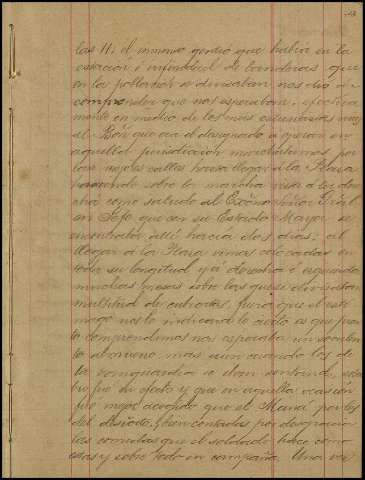 las 11; el inmenso gentío que había en la
estación é infinidad de banderas que
en la población se divisaban nos dió á
comprender que nos esperaban, efectiva
mente en medio de los mas
el Bón que era el designado a operar en
aquella jurisdicción marchamos por
las mejores calles hasta llegar á la Plaza
haciendo sobre la marcha vista a la dere
cha como saludo al Excmo Señor Gral
en Jefe que con su Estado Mayor se
encontraba allí hacía dos días; al
llegar á la Plaza vimos colocadas en
toda su longitud y á derecha é izquierda
muchas mesas sobre las que se divisaban
multitud de
mago nos lo indicara lo cierto es que pron
to comprendimos nos esperaba un suculen
to almuerzo, mas aun cuando los de
la vanguardia se iban sentando,
fue en efecto y que en aquella ocasión
fue mejor acogido que el Maná por los
del desierto, bien contadas por desgracia
las comidas que el soldado hace como
esas y sobre todo en campaña. Una vez